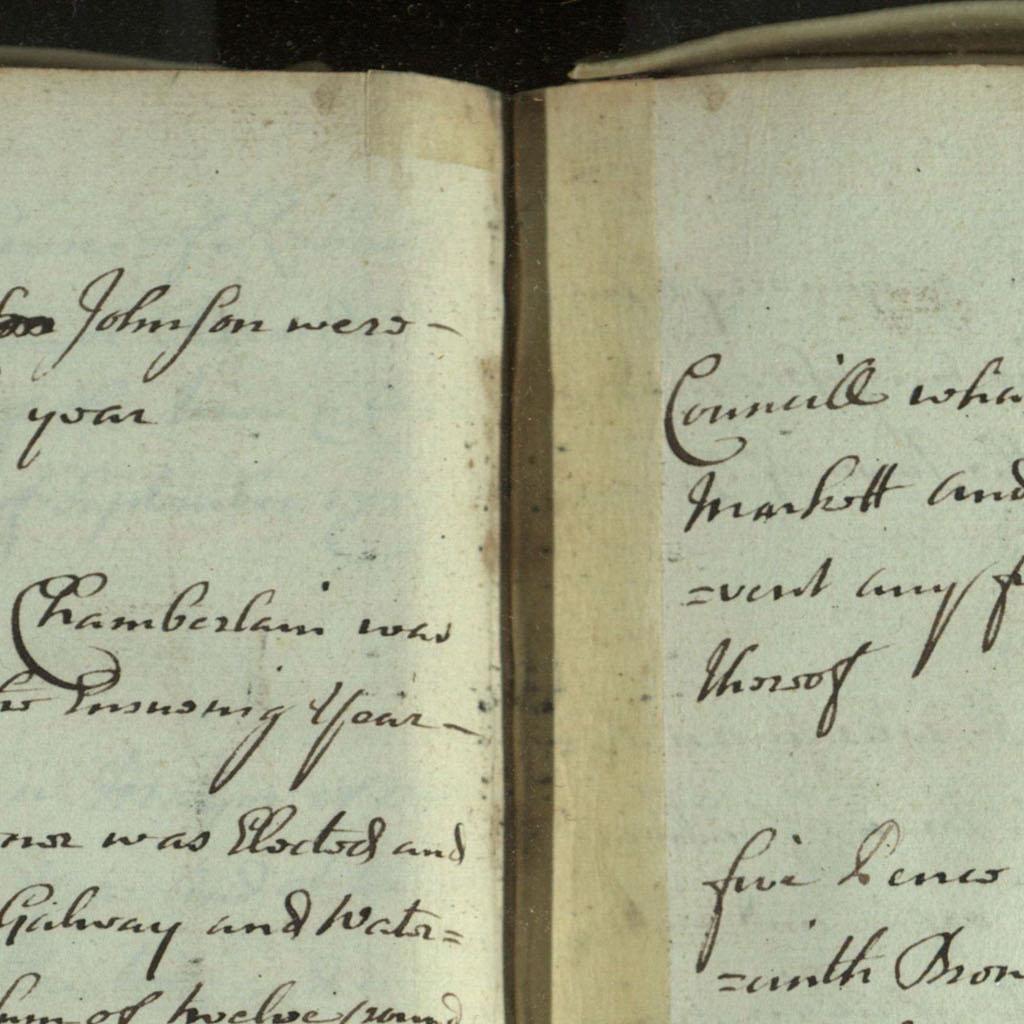 Johnson were -
year
Chamberlain was
Ensueing Year -
was Elected and
Galway and Water=
of twelve pound
Councill
Markett and
=vent any
thereof
five Pence